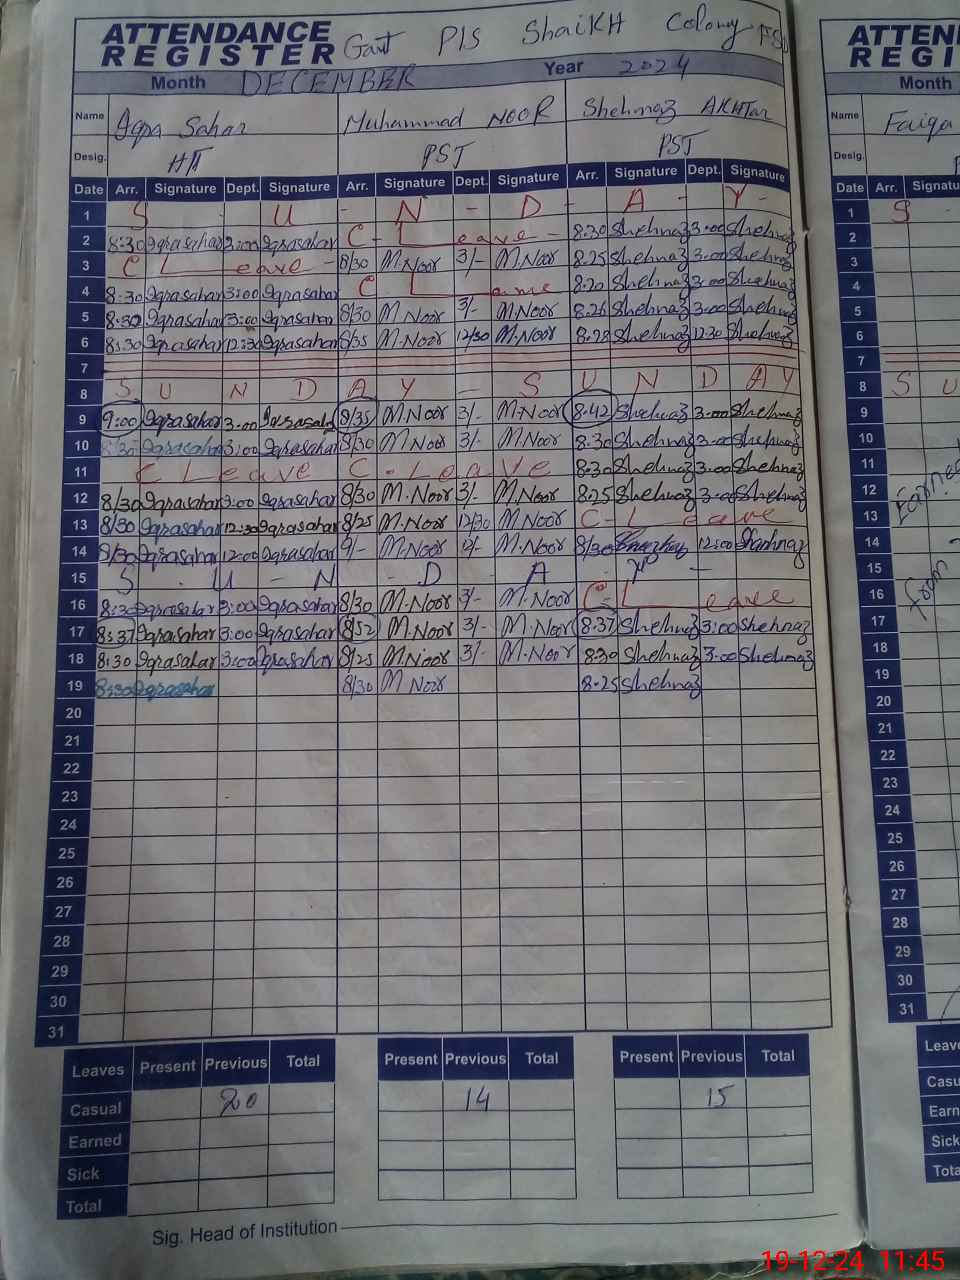 ATTENDANCE REGISTER Govt P/S Shaikh Colony FSD
Month DECEMBER Year 2024
Name Iqra Sahar Muhammad NOOR Shehnaz AKHTAR
Desig. HT PST PST
Date Arr. Signature Dept. Signature Arr. Signature Dept. Signature Arr. Signature Dept. Signature
1 S U N D A Y
2 8:30 Iqrasahar 3:00 Iqrasahar C - Leave - 8:30 Shehnaz 3:00 Shehnaz
3 C Leave - 8/30 M.Noor 3/- M.Noor 8:25 Shehnaz 3:00 Shehnaz
4 8:30 Iqrasahar 3:00 Iqrasahar C L 8:20 Shehnaz 3:00 Shehnaz
5 8:30 Iqrasahar 3:00 Iqrasahar 8/30 M.Noor 3/- M.Noor 8:26 Shehnaz 3:00 Shehnaz
6 8:30 Iqrasahar 12:30 Iqrasahar 8/35 M.Noor 12/30 M.Noor 8:28 Shehnaz 12:30 Shehnaz
7
8 S U N D A Y - S U N D A Y
9 9:00 Iqrasahar 3:00 Iqrasahar 8/35 M.Noor 3/- M.Noor 8:42 Shehnaz 3:00 Shehnaz
10 8:30 Iqrasahar 3:00 Iqrasahar 8/30 M.Noor 3/- M.Noor 8:30 Shehnaz 3:00 Shehnaz
11 C Leave C - Leave 8:30 Shehnaz 3:00 Shehnaz
12 8/30 Iqrasahar 3:00 Iqrasahar 8/30 M.Noor 3/- M.Noor 8:25 Shehnaz 3:00 Shehnaz
13 8/30 Iqrasahar 12:30 Iqrasahar 8/25 M.Noor 12/30 M.Noor C - Leave
14 8/30 Iqrasahar 12:00 Iqrasahar 9/- M.Noor 12/- M.Noor 8/30 12:00 Shahnaz
15 S U N D A Y
16 8:30 Iqrasahar 3:00 Iqrasahar 8/30 M.Noor 3/- M.Noor C - Leave
17 8:37 Iqrasahar 3:00 Iqrasahar 8/52 M.Noor 3/- M.Noor 8:37 Shehnaz 3:00 Shehnaz
18 8:30 Iqrasahar 3:00 Iqrasahar 8/25 M.Noor 3/- M.Noor 8:30 Shehnaz 3:00 Shehnaz
19 8:30 Iqrasahar 8/30 M.Noor 8:25 Shehnaz
20
21
22
23
24
25
26
27
28
29
30
31
Leaves Present Previous Total Present Previous Total Present Previous Total
Casual 20 14 15
Earned
Sick
Total
Sig. Head of Institution
ATTEN
REGIS
Month
Name Faiqa
Desig.
Date Arr. Signatu
1 S
2
3
4
5
6
7
8 S U
9
10
11
12 Earned
13
14
15
16 from
17
18
19
20
21
22
23
24
25
26
27
28
29
30
31
Leave
Casu
Earn
Sick
Tota
19-12-24 11:45